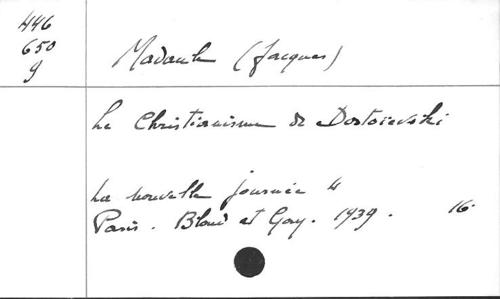 446
650
g
Madaule (Jacques)
Le Christianisme de Dostoievski
La nouvelle journée 4
Paris. Bloud et Gay. 1939. 16°